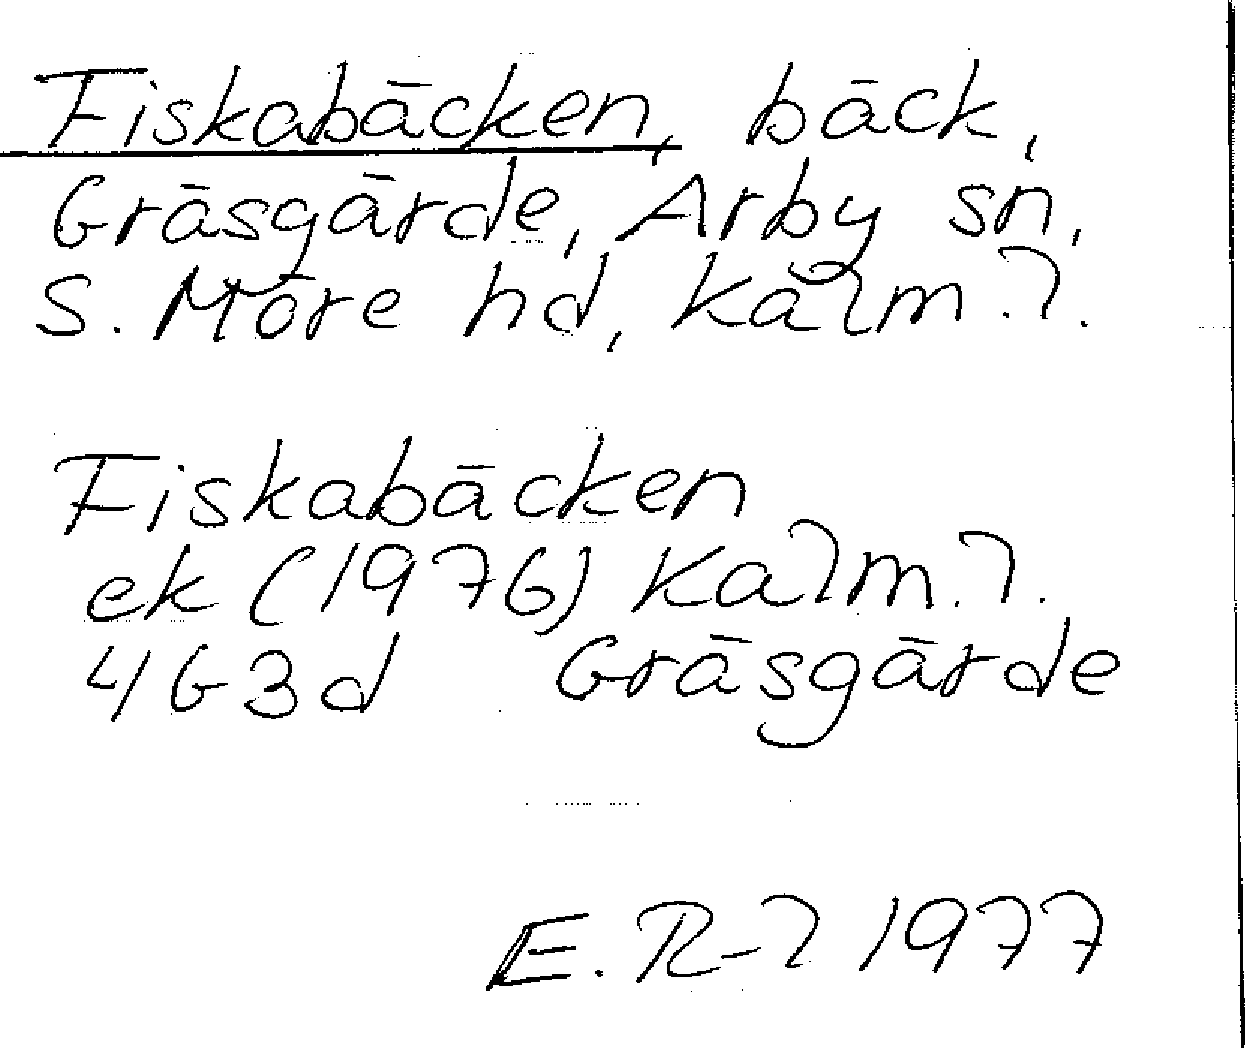 Fiskabäcken, bäck,
Gräsgärde, Arby sn,
S. Möre hd, Kalm. l.
Fiskabäcken
ek (1976) Kalm. l.
4G3d Gräsgärde
E. R-l 1977